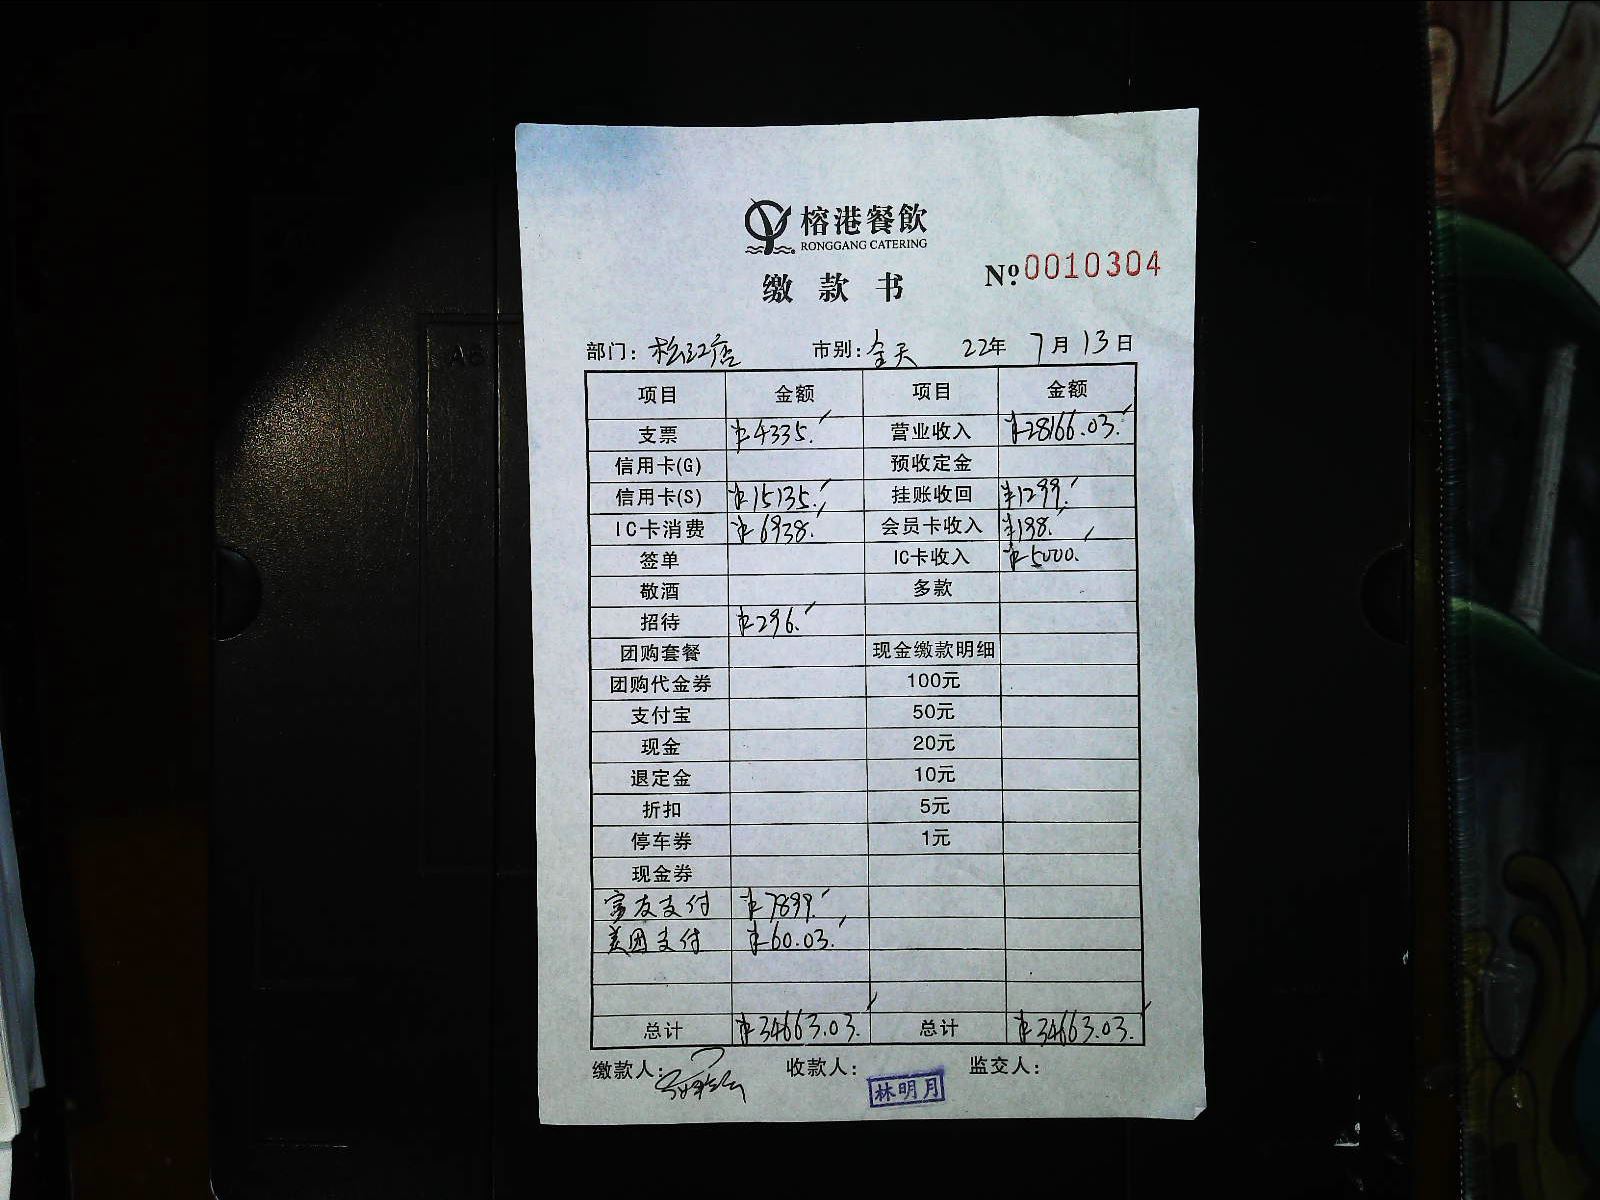 榕港餐飲
RONGGANG CATERING
缴款书 №0010304
部门：松江店 市别：全天 22年 7月13日
项目 金额 项目 金额
支票 ¥4335. 营业收入 ¥28166.03.
信用卡(G) 预收定金
信用卡(S) ¥15135. 挂账收回 ¥1299.
IC卡消费 ¥6938. 会员卡收入 ¥198.
签单 IC卡收入 ¥5000.
敬酒 多款
招待 ¥296.
团购套餐 现金缴款明细
团购代金券 100元
支付宝 50元
现金 20元
退定金 10元
折扣 5元
停车券 1元
现金券
富友支付 ¥7899.
美团支付 ¥60.03.
总计 ¥34663.03. 总计 ¥34663.03.
缴款人： 收款人： 林明月 监交人：